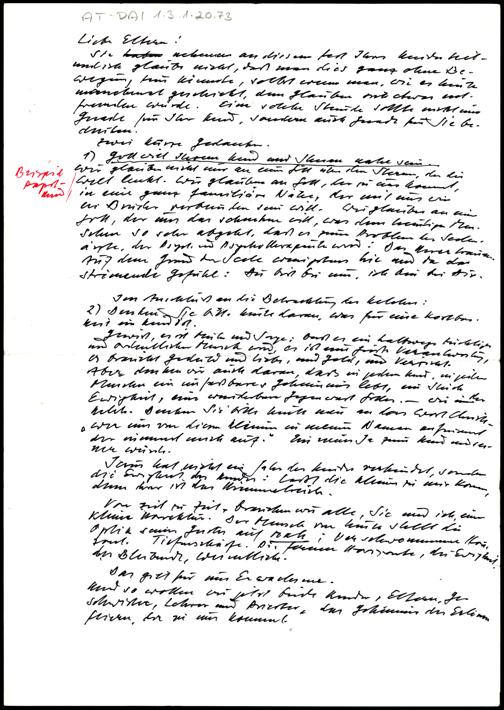 AT-DAI 1.3.1-20.73
Liebe Eltern!
Sie nehmen an diesem Fest Ihres Kindes teil
und ich glaube nicht, daß man dies ganz ohne Be-
wegung tun könnte, selbst wenn man, wie es heute
manchmal geschieht, dem Glauben etwas ent-
fremdet würde. Eine solche Stunde sollte nicht nur
Gnade für Ihr Kind, sondern auch Gnade für Sie be-
deuten.
Zwei kurze Gedanken.
1) Gott will Ihrem Kind und Ihnen nahe sein
Beispiel
Wir glauben nicht nur an einen Gott über den Sternen, der die
Welt lenkt. Wir glauben an Gott, der zu uns kommt,
in eine ganz familiäre Nähe, der mit uns wie
ein Bruder verbunden sein will. Wir glauben an einen
Gott, der uns das schenken will, was dem heutigen Men-
schen so sehr abgeht, daß es zum Problem der Seelen-
ärzte, der Psych. und Psychotherapeuten wird: Das Urvertrauen
Auf dem Grund der Seele wenigstens hie und da das
strömende Gefühl: Du bist bei uns, ich bin bei Dir.
Im Anschluß an die Betrachtung des Kelches:
2) Denken Sie bitte heute daran, was für eine Kostbar-
keit ein Kind ist.
Gewiß, es ist Mühe und Sorge; daß es ein halbwegs tüchtiger
und ordentlicher Mensch wird, es ist eine große Verantwortung,
es braucht Geduld und Liebe, und Geld, und Verzicht.
Aber denken wir auch daran, daß in jedem Kind, in jedem
Menschen ein unfaßbares Geheimnis lebt, ein Stück
Ewigkeit, eine wunderbare Gegenwart Gottes – wie in
Kelch. Denken Sie bitte heute an das Wort Christi
„wer eines von diesen Kleinen in meinem Namen aufnimmt
der nimmt mich auf." Ein neues Ja zum Kind
Jesus hat nicht ein Jahr des Kindes verkündet, sondern
die Ewigkeit des Kindes: Laßt die Kleinen zu mir kommen,
denn ihrer ist das Himmelreich.
Von Zeit zu Zeit, brauchen wir alle, Sie und ich, eine
kleine Korrektur. Der Mensch von heute stellt die
Optik seines Geistes auf nah; verschwommene Hori-
zont. Tiefenschärfe. Die fernen Horizonte, die Ewigkeit,
das Bleibende, Wesentliche.
Das gilt für uns Erwachsene.
Und so wollen wir jetzt beide Kinder, Eltern, Ge-
schwister, Lehrer und Priester, das Geheimnis des Erlösers
feiern, der zu uns kommt.